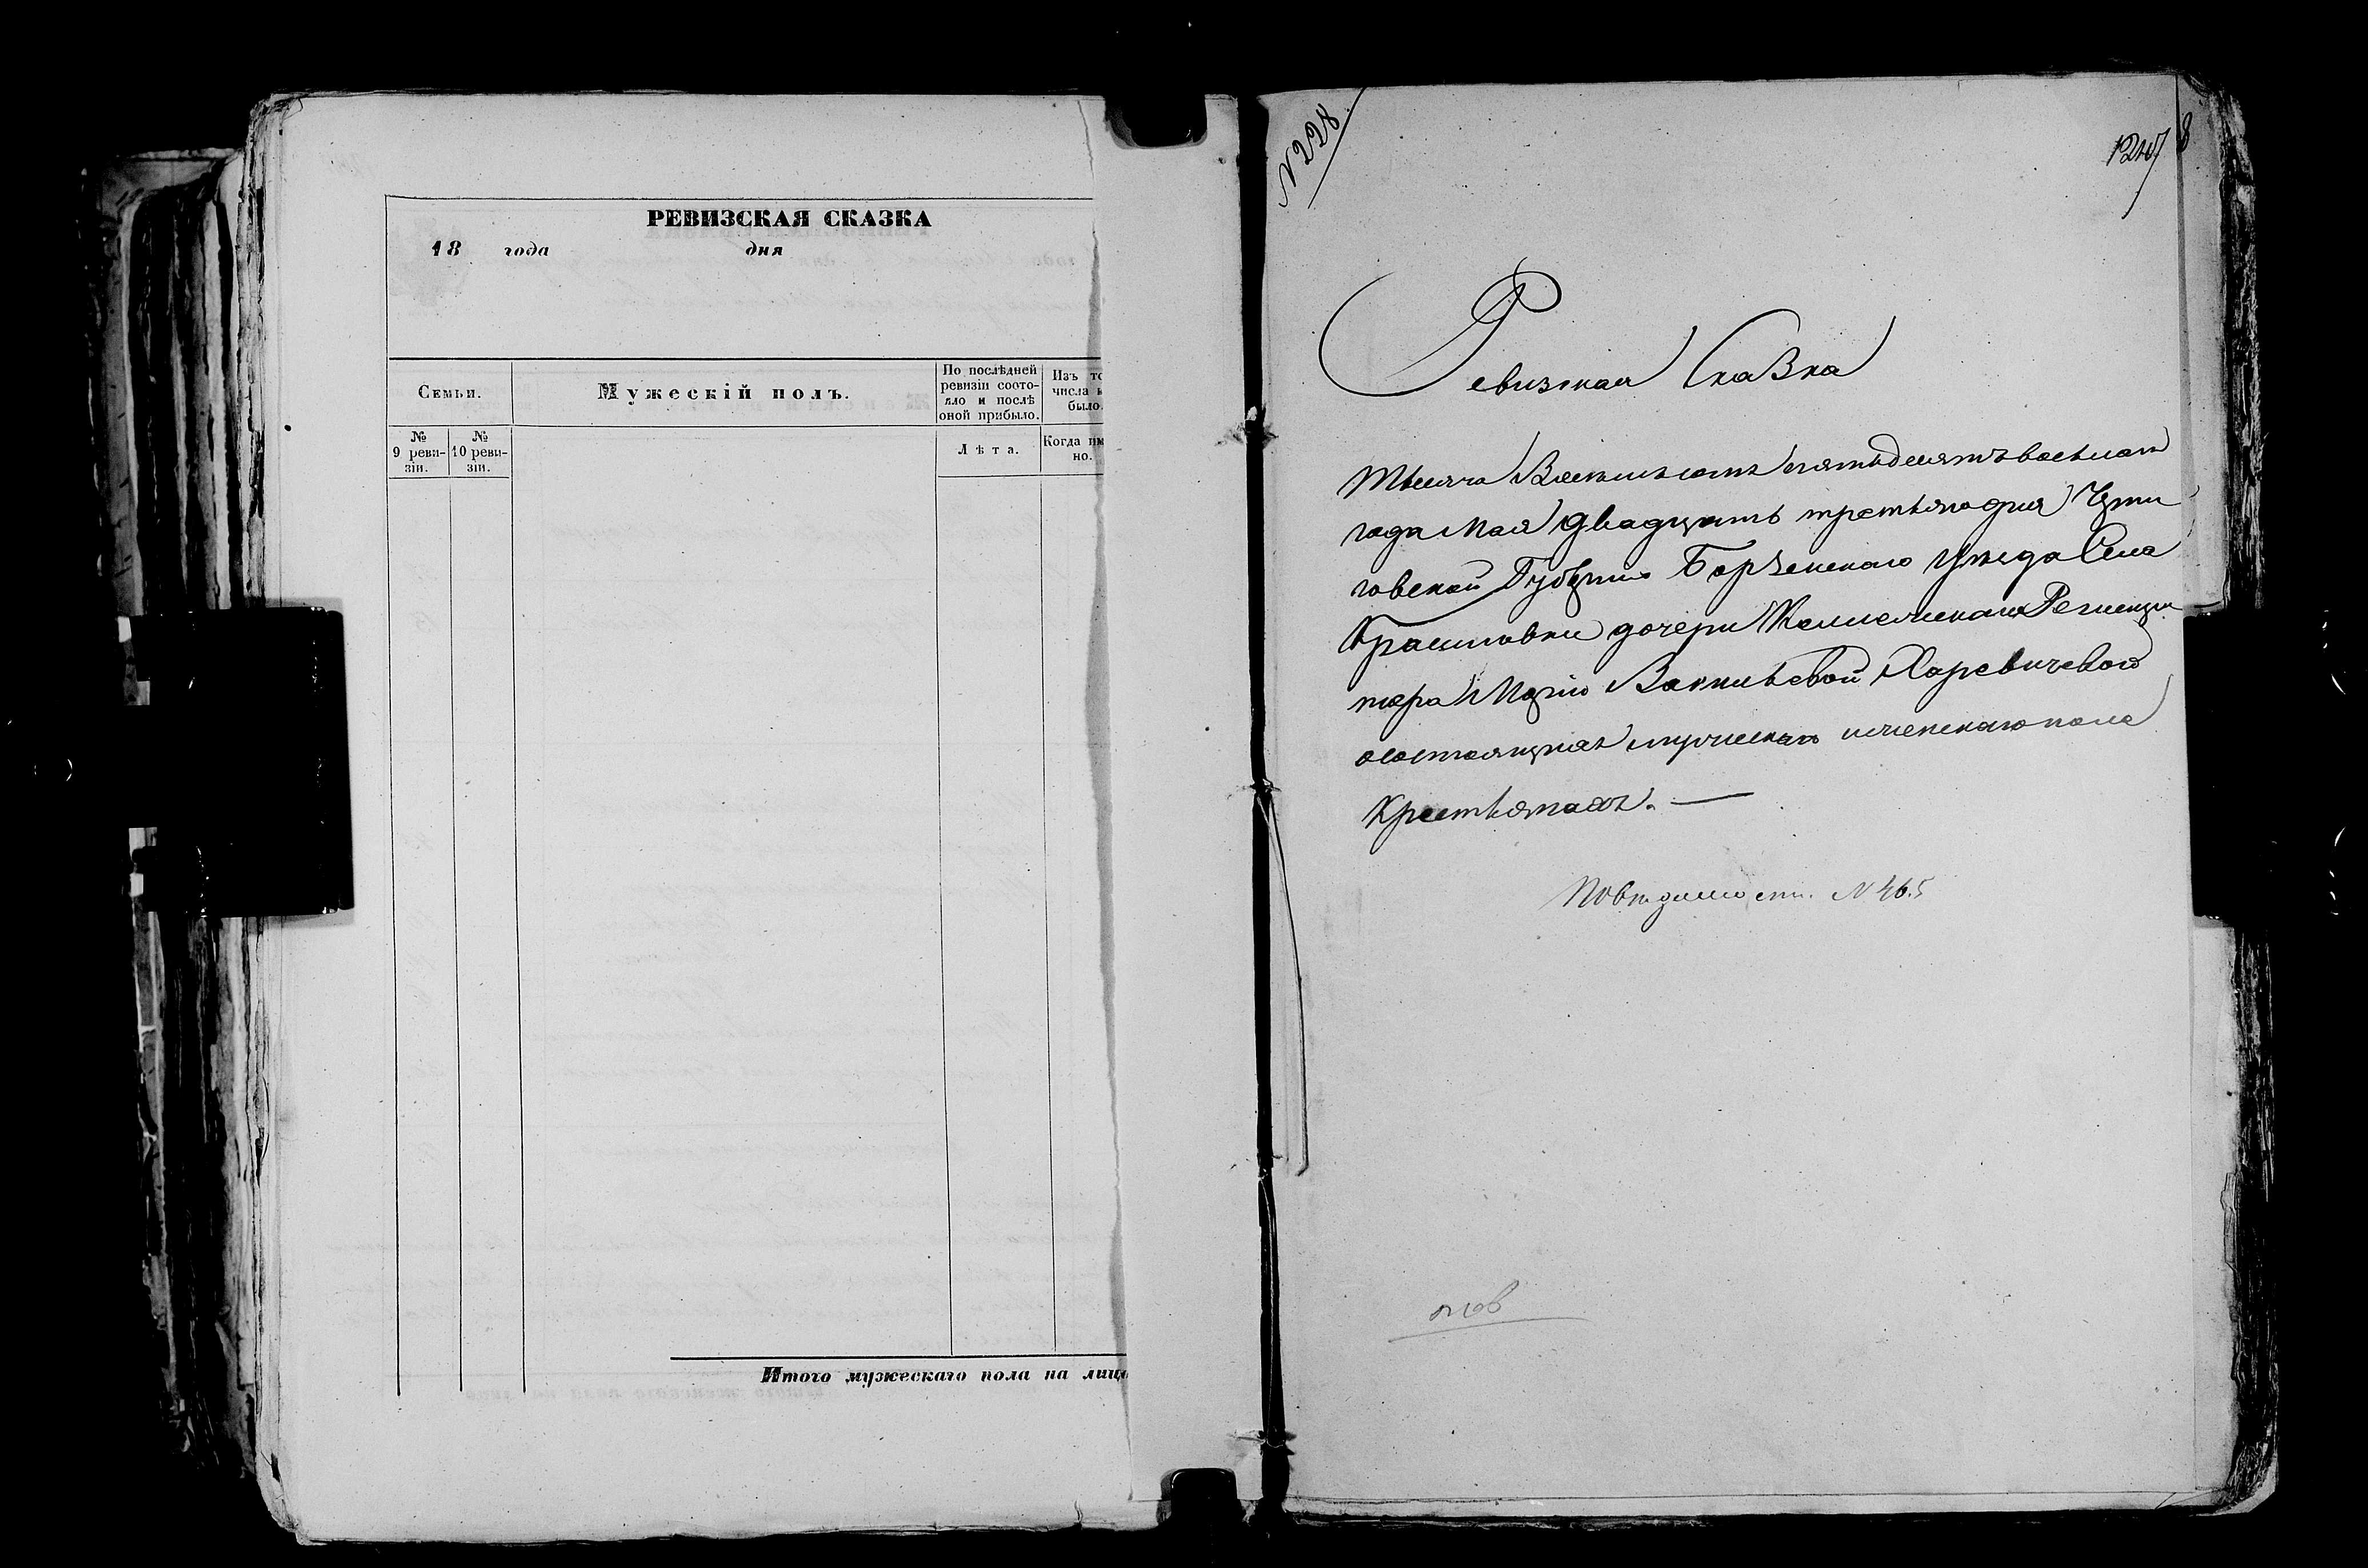 РЕВИЗСКАЯ СКАЗКА
18 года дня
Семьи.
Мужескій полъ.
По послѣдней
ревизіи состо-
яло и послѣ
оной прибыло.
Изъ то
числа в
было.
№
9 реви-
зіи.
№
10 реви-
зіи.
Лѣта.
Когда им
но.
Итого мужескаго пола на лице
N 228
Ревизская Сказка
Тысяча Восемьсотъ пятьдесятъ восьмаго
года Мая двадцать третьяго дня Черни
говской Губерніи Борзенскаго Уѣзда Села
дочери Коллежскаго Регистра
тора Маріи Васильевой Харевичевой
о состоящихъ мужеска и женскаго пола
Крестьянахъ. —
По вѣдомости. N 465